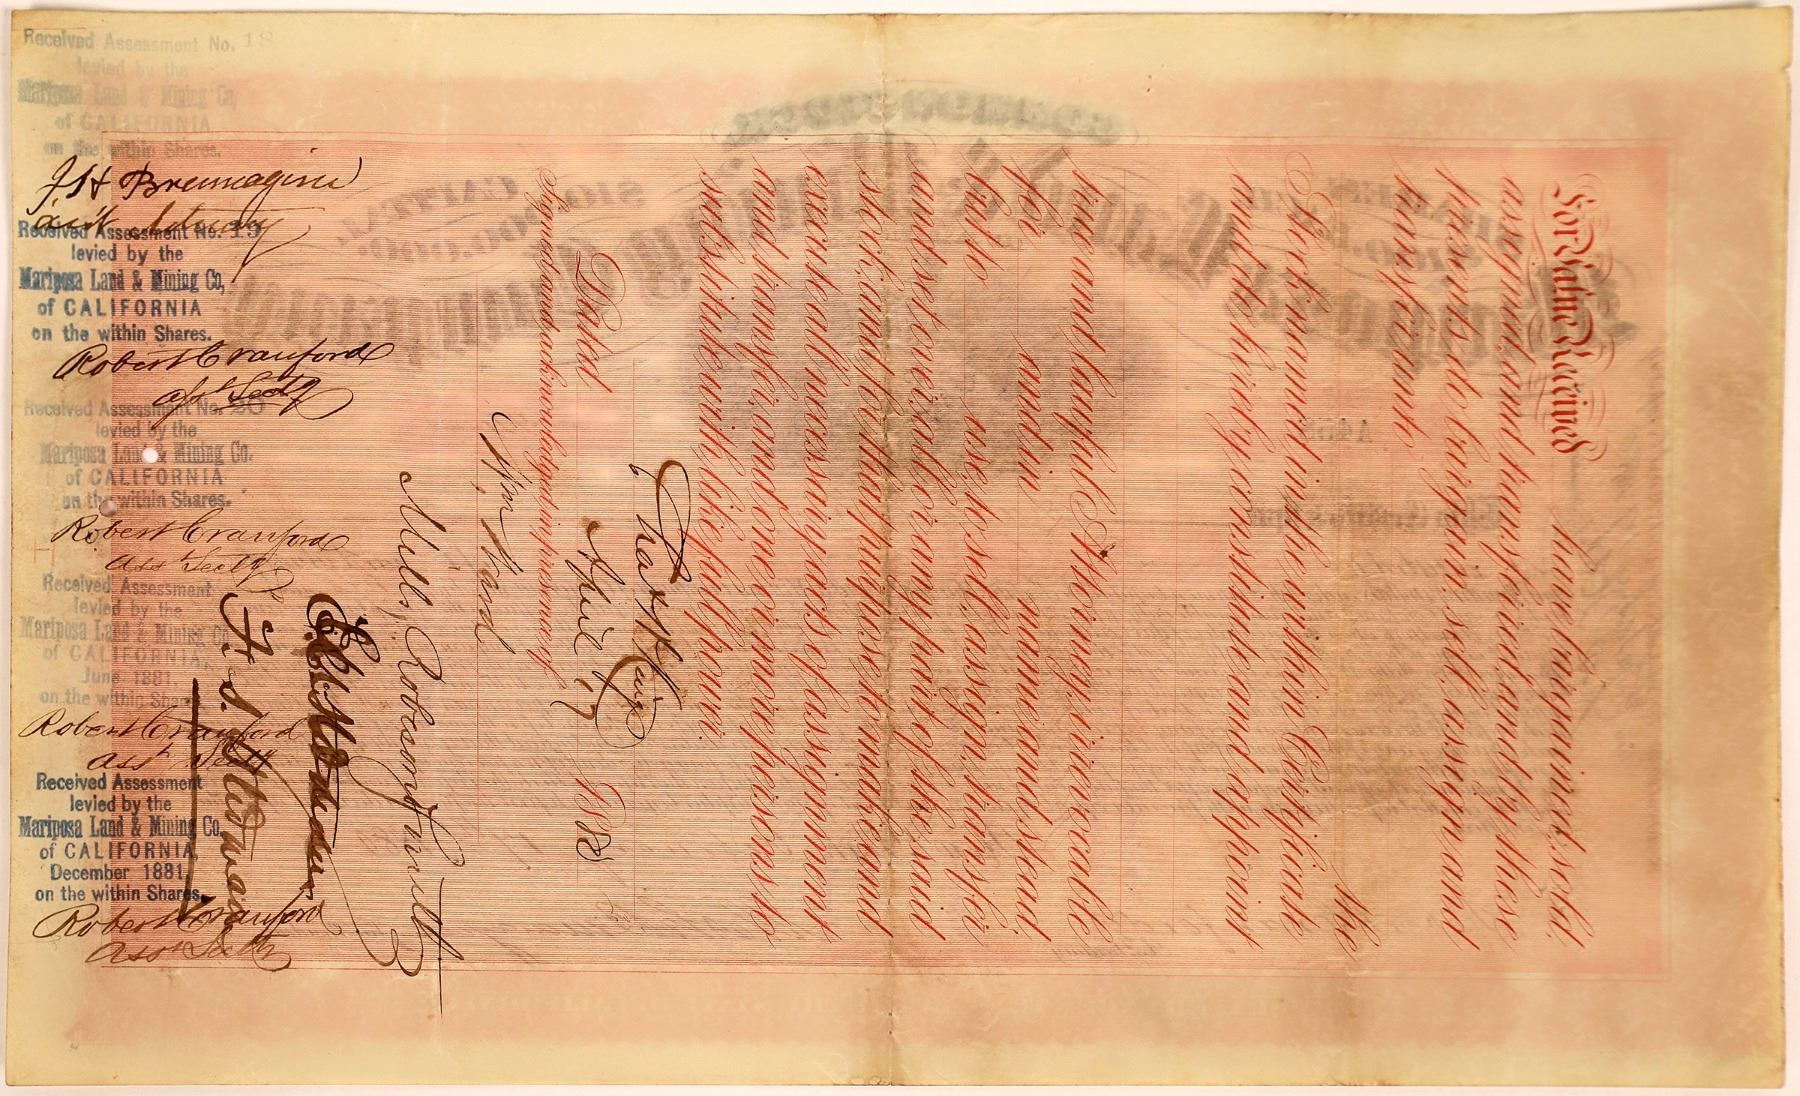 Received Assessment No. 18
levied by the
Mariposa Land & Mining Co,
of CALIFORNIA
on the within Shares.
Received Assessment No. 19
levied by the
Mariposa Land & Mining Co,
of CALIFORNIA
on the within Shares.
Robert Cranford
Asst Secty
Received Assessment No. 20
levied by the
Mariposa Land & Mining Co.
of CALIFORNIA
on the within Shares.
Robert Cranford
Asst Secty
Received Assessment
levied by the
Mariposa Land & Mining Co,
of CALIFORNIA,
June 1881,
on the within Shares.
Robert Cranford
Asst Secty
Received Assessment
levied by the
Mariposa Land & Mining Co.
of CALIFORNIA,
December 1881,
on the within Shares.
Robert Cranford
Asst Secty
For Value Received have bargained, sold,
assigned and transferred and by these
presents do bargain, sell, assign and
transfer unto
the
Stock named in the within Certificate
and do hereby constitute and appoint
true and lawful Attorney, irrevocable
for and in name and stead
but to use, to sell, assign, transfer
and set over all or any part of the said
stock, and for that purpose to make and
execute all necessary acts of assignment
and transfer, and one or more persons to
substitute with like full power.
Dated April 17 18
Signed and acknowledged in presence of
Wm Ward
Mills, Robeson & Smith